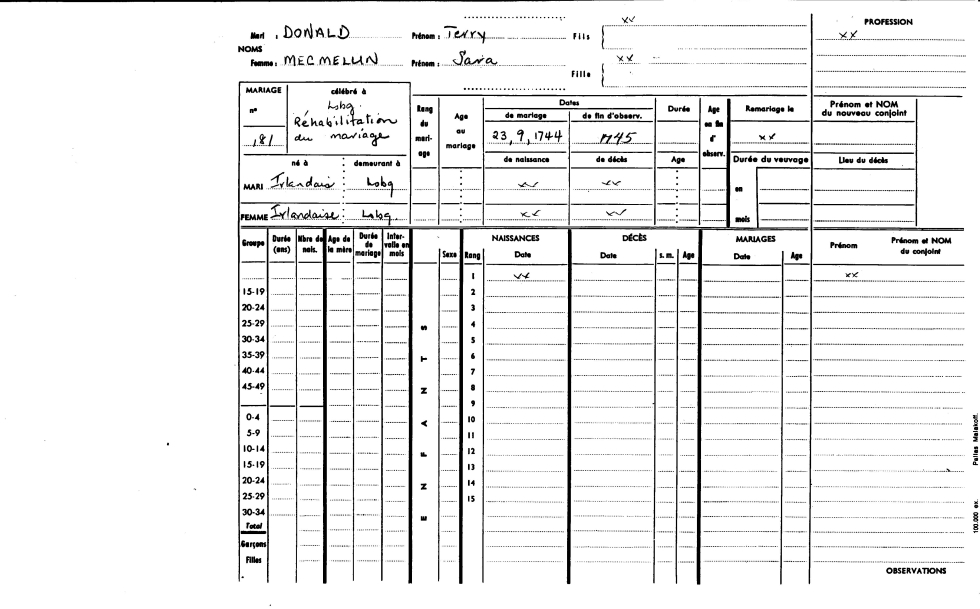 xx PROFESSION
Mari : DONALD Prénom : Terry Fils xx
NOMS
Femme : MECMELLIN Prénom : Sara xx
Fille
MARIAGE célébré à Dates Prénom et NOM
n° Lsbg. Rang du mariage Age au mariage de mariage de fin d'observ. Durée Age en fin d'observ. Remariage le du nouveau conjoint
181 Réhabilitation du mariage 23, 9, 1744 1745 xx
né à : demeurant à de naissance de décès Age Durée du veuvage Lieu du décès
MARI Irlandais : Lsbg xx xx en
FEMME Irlandaise : Lsbg. xx xx mois
Groupe Durée (ans) Nbre de nais. Age de la mère Durée de mariage Intervalle en mois NAISSANCES DÉCÈS MARIAGES Prénom Prénom et NOM du conjoint
Sexe Rang Date Date s. m. Age Date Age
1 xx xx
15-19 2
20-24 3
25-29 S 4
30-34 5
35-39 T 6
40-44 7
45-49 N 8
9
0-4 A 10
5-9 11
10-14 F 12
15-19 13
20-24 N 14
25-29 15
30-34 E
Total
Garçons
Filles
OBSERVATIONS
100.000 ex. Pailles Malakoff.